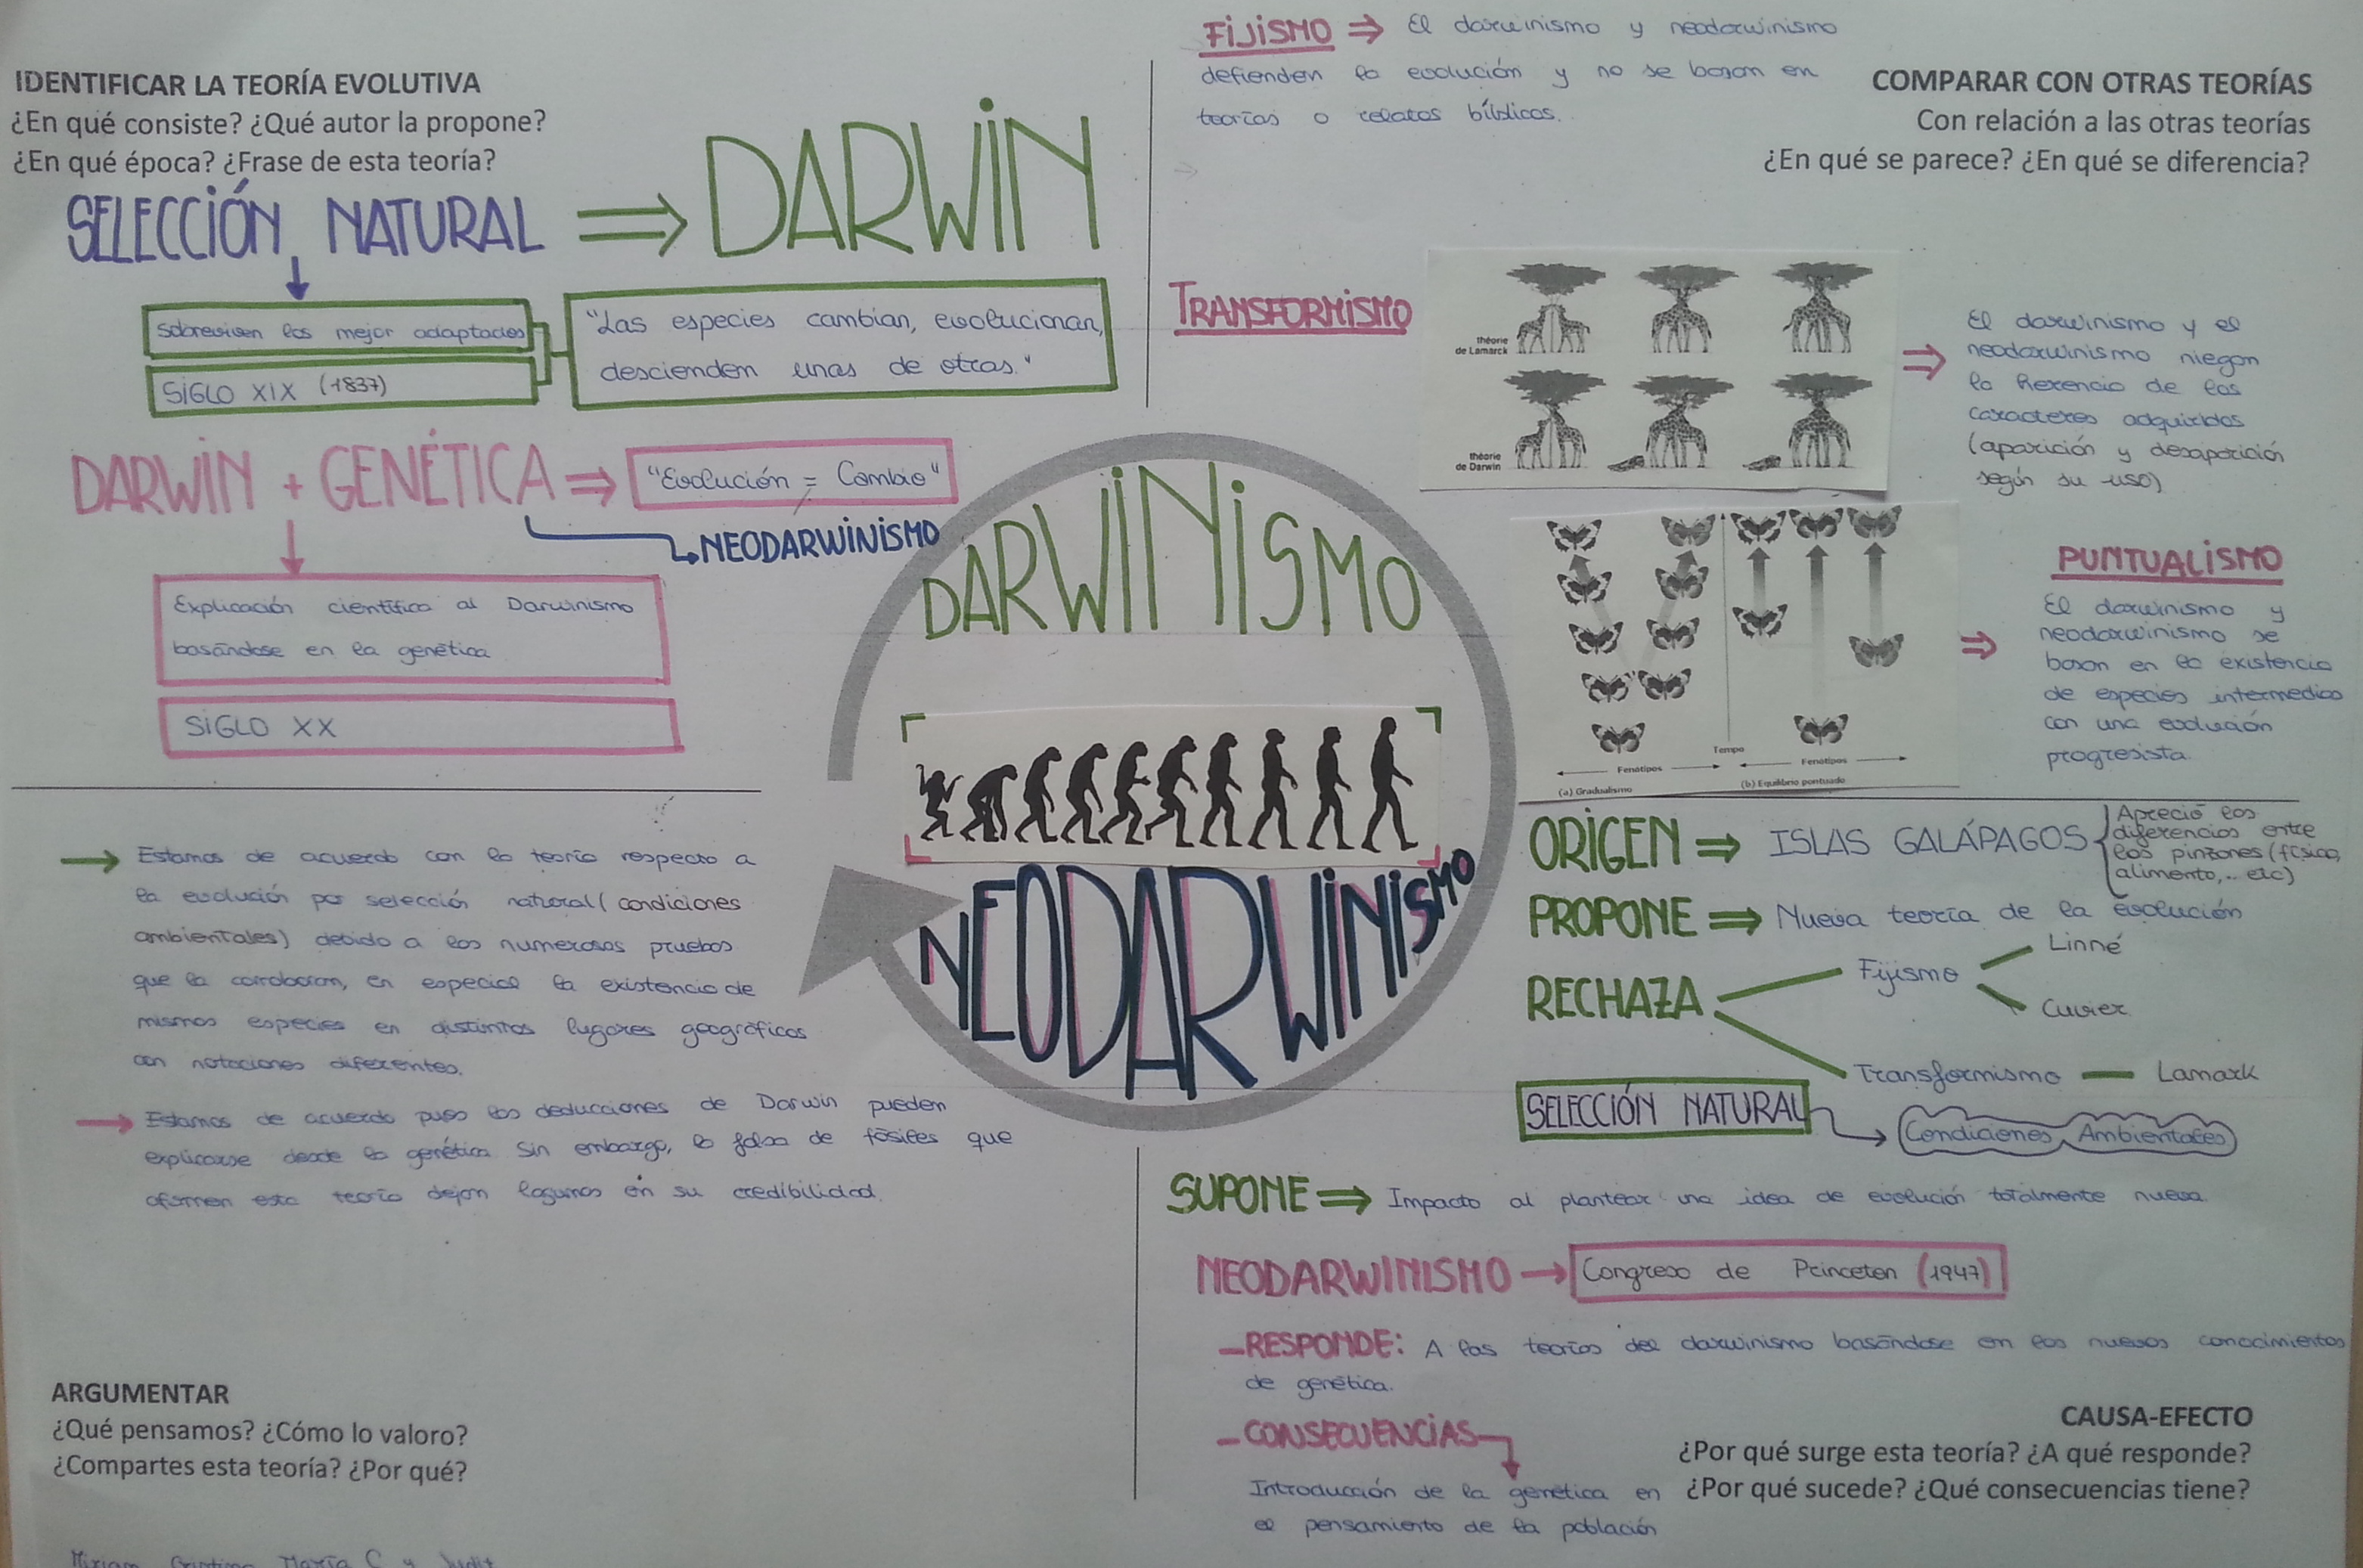 IDENTIFICAR LA TEORÍA EVOLUTIVA
¿En qué consiste? ¿Qué autor la propone?
¿En qué época? ¿Frase de esta teoría?
SELECCIÓN NATURAL ⇒ DARWIN
Sobreviven los mejor adaptados
SIGLO XIX (1837)
"Las especies cambian, evolucionan,
descienden unas de otras."
DARWIN + GENÉTICA ⇒ "Evolución = Cambio"
NEODARWINISMO
Explicación científica al Darwinismo
basándose en la genética
SIGLO XX
FIJISMO ⇒ El darwinismo y neodarwinismo
defienden la evolución y no se basan en
teorías o relatos bíblicos.
COMPARAR CON OTRAS TEORÍAS
Con relación a las otras teorías
¿En qué se parece? ¿En qué se diferencia?
TRANSFORMISMO
théorie
de Lamarck
théorie
de Darwin
El darwinismo y el
neodarwinismo niegan
la herencia de los
caracteres adquiridos
(aparición y desaparición
según su uso)
PUNTUALISMO
El darwinismo y
neodarwinismo se
basan en la existencia
de especies intermedias
con una evolución
progresista.
Tempo
Fenótipos
Fenótipos
(a) Gradualismo
(b) Equilíbrio pontuado
DARWINISMO
NEODARWINISMO
→ Estamos de acuerdo con la teoría respecto a
la evolución por selección natural (condiciones
ambientales) debido a las numerosas pruebas
que la corroboran, en especial la existencia de
mismas especies en distintos lugares geográficos
con notaciones diferentes.
→ Estamos de acuerdo pues las deducciones de Darwin pueden
explicarse desde la genética. Sin embargo, la falsa de fósiles que
afirmen esta teoría dejan lagunas en su credibilidad.
ARGUMENTAR
¿Qué pensamos? ¿Cómo lo valoro?
¿Compartes esta teoría? ¿Por qué?
Miriam, Cristina, María C y Judit
ORIGEN ⇒ ISLAS GALÁPAGOS
Apreció las
diferencias entre
los pinzones (físico,
alimento,.. etc)
PROPONE ⇒ Nueva teoría de la evolución
RECHAZA
Fijismo
Linné
Cuvier
Transformismo — Lamark
SELECCIÓN NATURAL
Condiciones Ambientales
SUPONE ⇒ Impacto al plantear una idea de evolución totalmente nueva.
NEODARWINISMO → Congreso de Princeton (1947)
– RESPONDE: A las teorías del darwinismo basándose en los nuevos conocimientos
de genética.
– CONSECUENCIAS
Introducción de la genética en
el pensamiento de la población
CAUSA-EFECTO
¿Por qué surge esta teoría? ¿A qué responde?
¿Por qué sucede? ¿Qué consecuencias tiene?